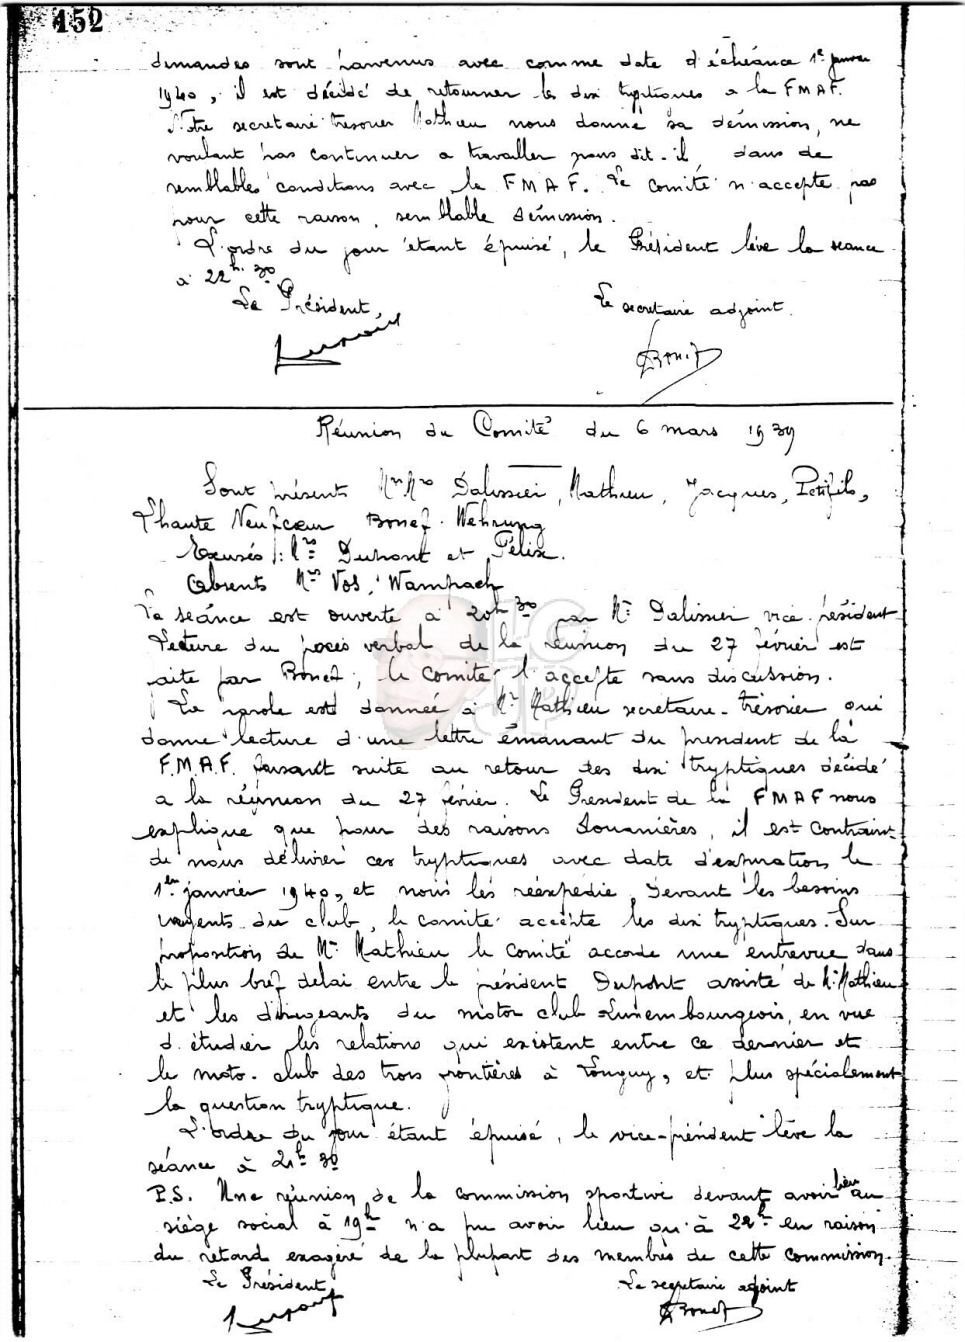 152
demandes sont parvenus avec comme date d'échéance 1er janvier
1940, il est décidé de retourner les dix tryptiques a la FMAF.
Notre secretaire tresorier Mathieu nous donne sa démission, ne
voulant pas continuer a travailler nous dit-il, dans de
semblables conditions avec la FMAF. Le comité n'accepte pas
pour cette raison, semblable démission.
L'ordre du jour étant épuisé, le Président lève la séance
à 22h. 30
Le Président, Le secretaire adjoint.
Bonef
Réunion du Comité du 6 mars 1939
Sont présents Mrs Dalissier, Mathieu, Jacques, Petifils,
Lhaute Neufcoeur Bonef. Wehrung
Excusés: Mrs Dupont et Félix.
Absents Mrs Vos, Wampach
La séance est ouverte à 20h 30 par Mr Dalissier vice-président
Lecture du procès verbal de la réunion du 27 février est
faite par Bonef; le comité l'accepte sans discussion.
La parole est donnée à Mr Mathieu secretaire-trésorier qui
donne lecture d'une lettre émanant du president de la
F.M.A.F. faisant suite au retour des dix tryptiques décidé
a la réunion du 27 février. Le President de la FMAF nous
explique que pour des raisons douanières, il est contraint
de nous délivrer ces tryptiques avec date d'expiration le
1er janvier 1940, et nous les réexpédie. Devant les besoins
urgents du club, le comité accepte les dix tryptiques. Sur
proposition de Mr Mathieu le comité accorde une entrevue dans
le plus bref delai entre le président Dupont assisté de Mr Mathieu
et les dirigeants du motor club Luxembourgeois, en vue
d'étudier les relations qui existent entre ce dernier et
le moto-club des trois frontières à Longwy, et plus spécialement
la question tryptique.
L'ordre du jour étant épuisé, le vice-président lève la
séance à 21h 30
P.S. Une réunion de la commission sportive devant avoir lieu au
siège social à 19h n'a pu avoir lieu qu'à 22h en raison
du retard exagéré de la plupart des membres de cette commission.
Le Président Le secretaire adjoint
Bonef